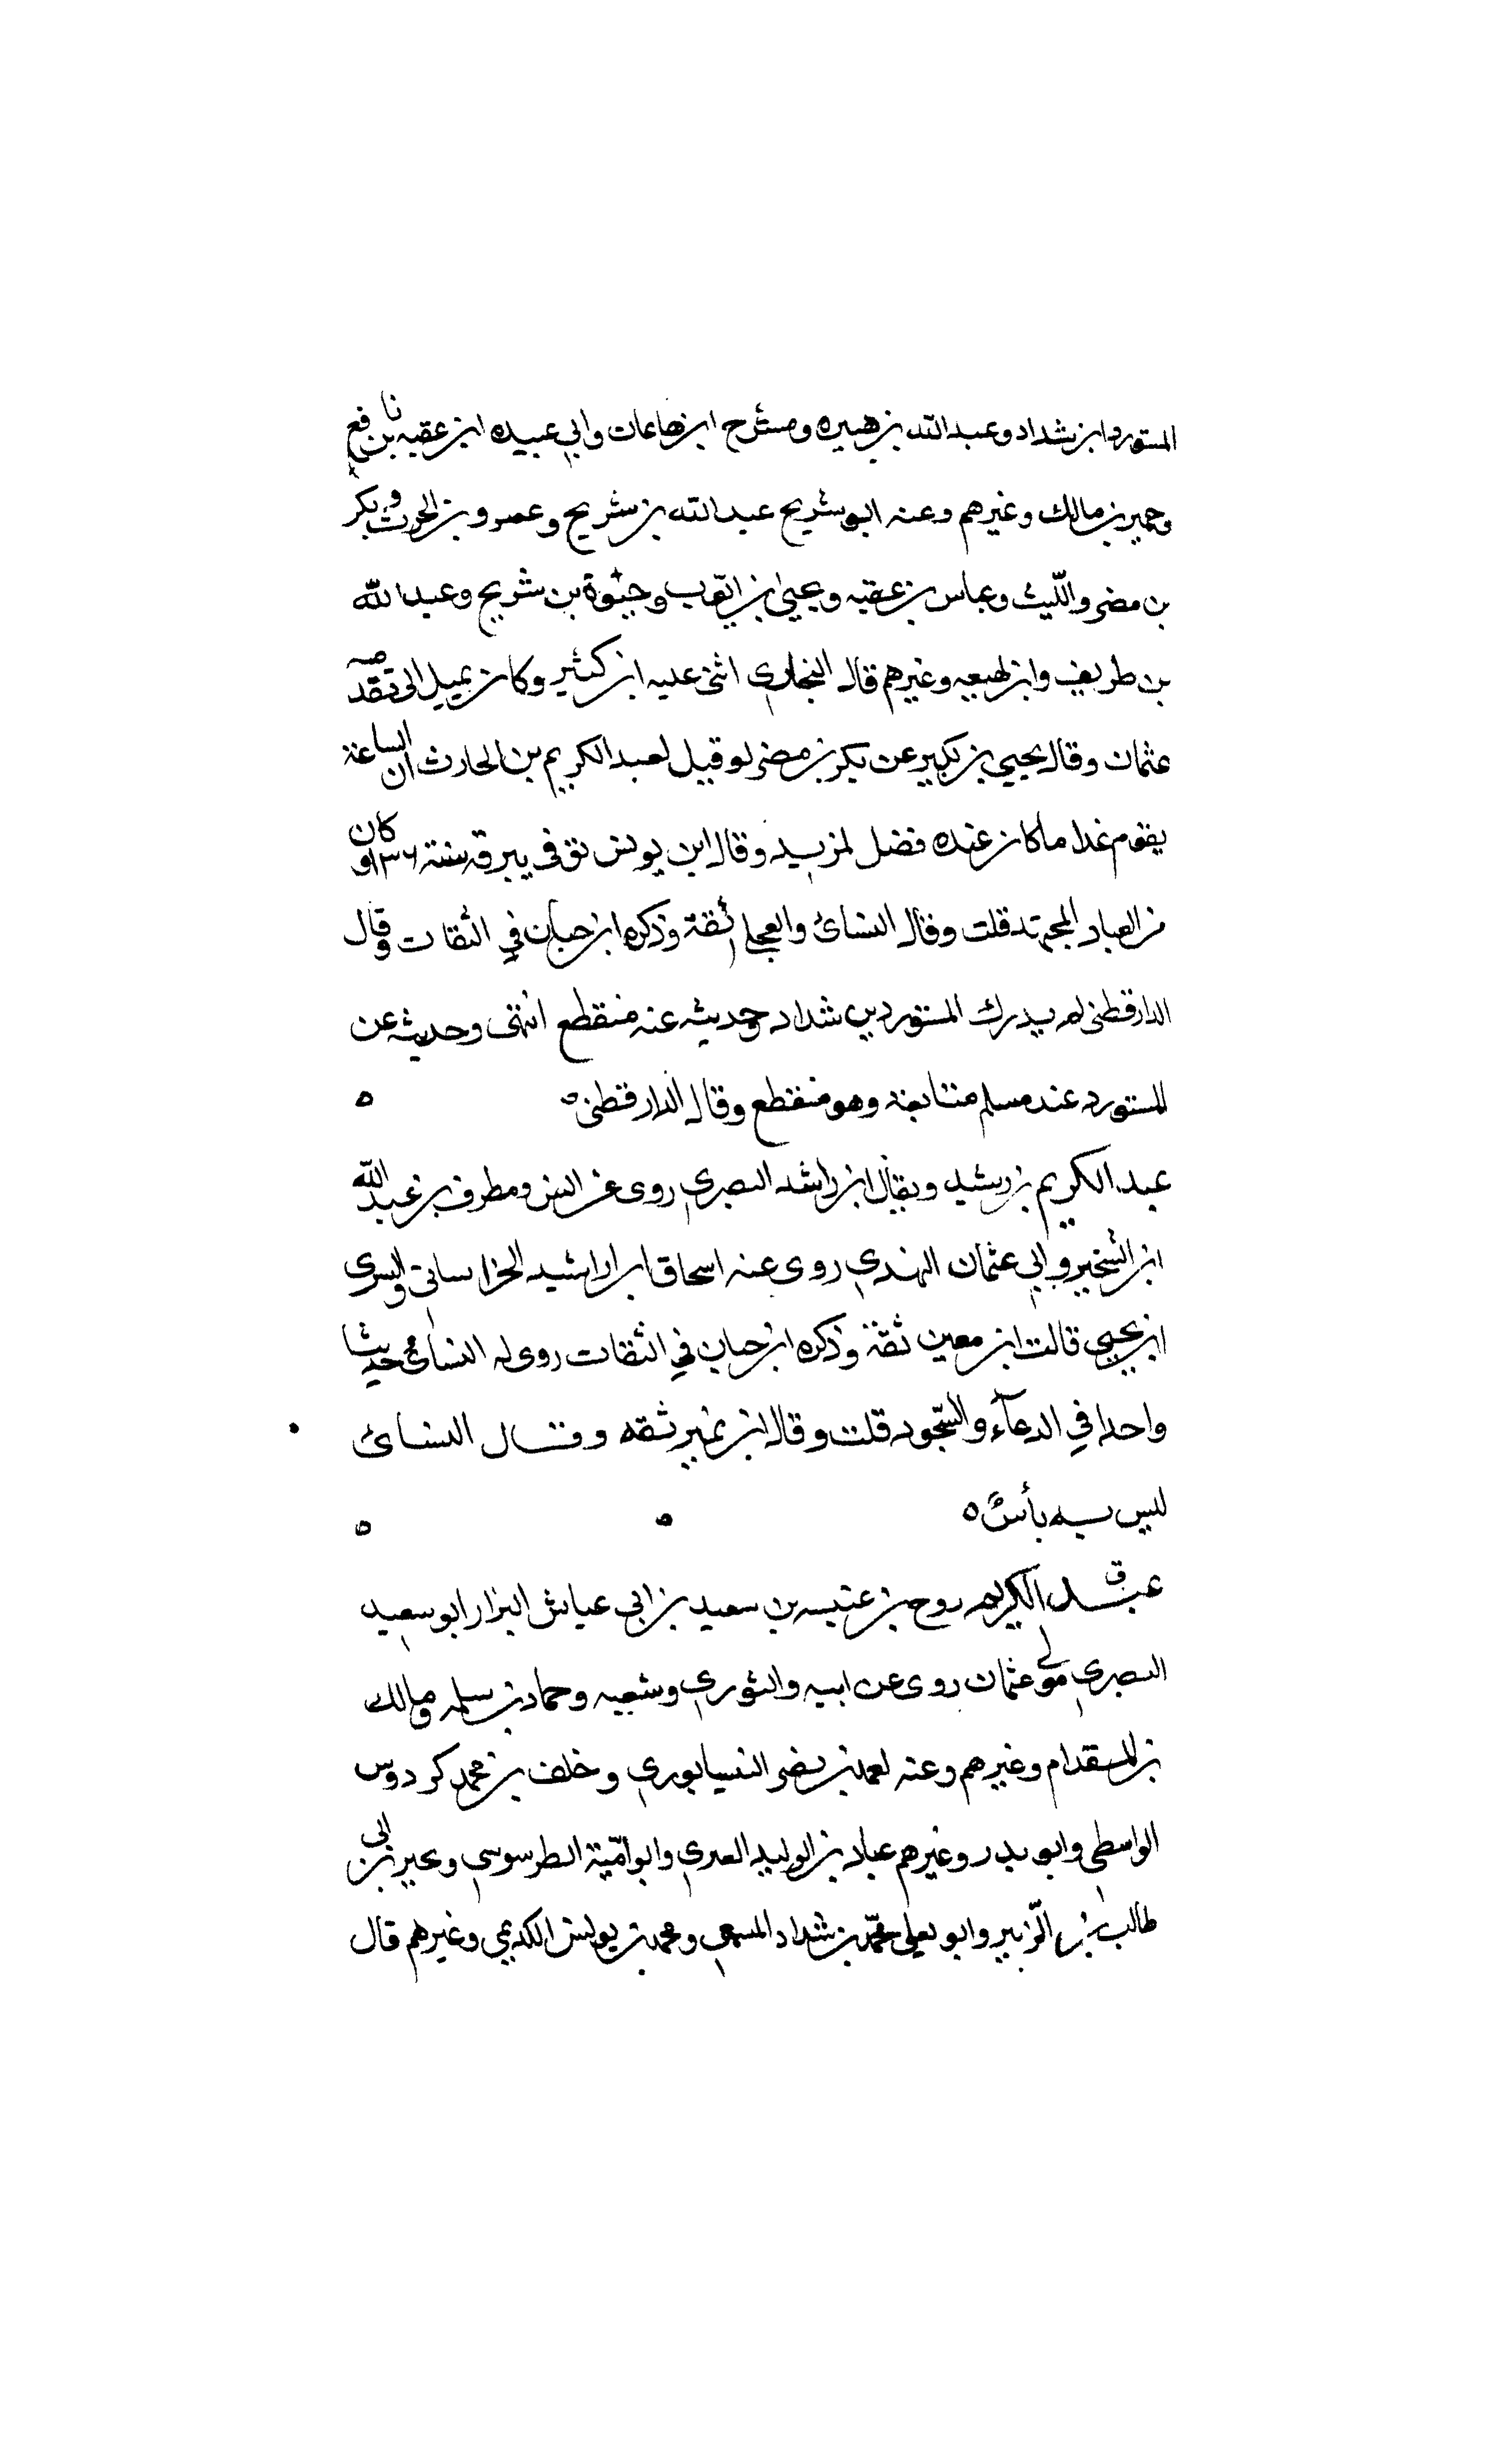 المستورد ابن شداد وعبد الله بن هبيره ومشرح ابن هاعان وابي عبيده ابن عقبه بن نافع
وحمير بن مالك وغيرهم وعنه ابو شريح عبد الله بن شريح وعمرو بن الحرث وبكر
بن مضر والليث وعباس بن عقبه ويحيى بن ايوب وحيوة بن شريح وعبد الله
بن طريف وابن لهيعه وغيرهم قال البخاري اثنى عليه ابن كثير وكان يميل الى تقدمة
عثمان وقال يحيى بن بكير عن بكر بن مضر لو قيل لعبد الكريم بن الحارث ان الساعة
يقوم غدا ما كان عنده فضل لمزيد وقال ابن يونس توفى ببرقه سنة ١٣٦ وكان
من العباد المجتهد قلت وقال النسائ والعجلي ثقة وذكره ابن حبان في الثقات وقال
الدارقطنى لم يدرك المستورد بن شداد وحديثه عنه منقطع انتهى وحديثه عن
المستورد عند مسلم متابعة وهو منقطع وقال الدارقطنى
عبد الكريم بن رشيد ويقال ابن راشد البصري روى عن انس ومطرف بن عبد الله
ابن الشخير وابي عثمان النهدي روى عنه اسحاق ابن اراشيد الخراسانى والسرى
ابن يحيى قالت ابن معين ثقة وذكره ابن حبان في الثقات روى له النسائي حديثا
واحدا في الدعآء والسجود قلت وقال ابن نمير ثقه وقال النسائ
ليس به بأس
عبد الكريم روح بن عنبسه بن سعيد بن ابي عياش البزار ابو سعيد
البصري مولى عثمان روى عن ابيه والثوري وشعبه وحماد بن سلمه ومالك
بن المقدام وغيرهم وعنه احمد بن نصر النيسابوري وخلف بن محمد كردوس
الواسطي وابو بدر وغيرهم عباد بن الوليد العبري وابو امية الطرسوسي ويحيى بن ابى
طالب بن الزبير وابو يعلى محمد بن شداد المسمعي ومحمد بن يونس الكديمي وغيرهم قال